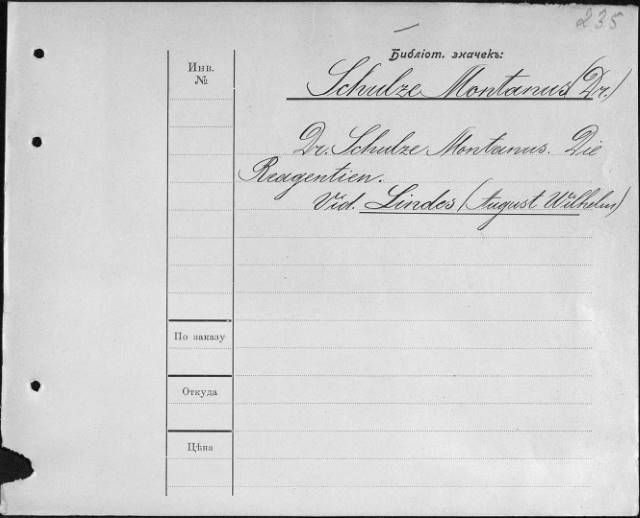 235
Библіот. значекъ:
Инв.
№
Schulze Montanus (Dr.)
Dr. Schulze Montanus. Die
Reagentien.
Vid. Lindes (August Wilhelm)
По заказу
Откуда
Цѣна